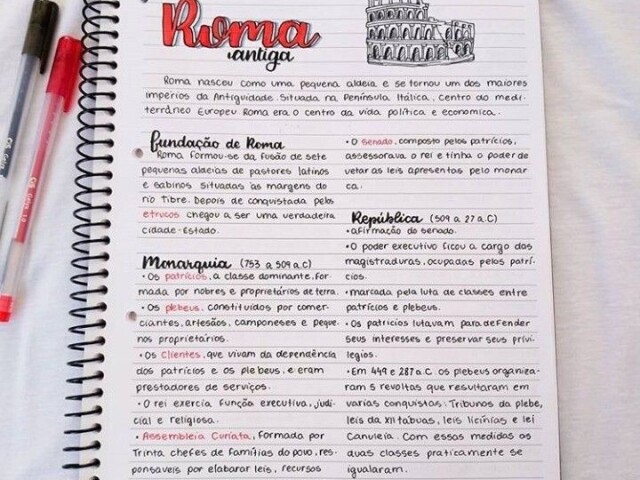 Roma
antiga
Roma nasceu como uma pequena aldeia e se tornou um dos maiores
impérios da Antiguidade. Situada na Península Itálica, centro do medi-
terrâneo Europeu Roma era o centro da vida política e economica.
Fundação de Roma
Roma formou-se da fusão de sete
pequenas aldeias de pastores latinos
e sabinos situadas às margens do
rio Tibre. Depois de conquistada pelos
etrucos chegou a ser uma verdadeira
cidade-Estado.
Monarquia (753 a 509 a.C)
• Os patrícios, a classe dominante, for
mada por nobres e proprietários de terra.
• Os plebeus, constituídos por comer
ciantes, artesãos, camponeses e peque
nos proprietários.
• Os Clientes, que vivam da dependência
dos patrícios e os plebeus, e eram
prestadores de serviços.
• O rei exercia função executiva, judi
cial e religiosa.
• Assembleia Curiata, formada por
Trinta chefes de famílias do povo, res-
ponsáveis por elaborar leis, recursos
• O senado, composto pelos patrícios,
assessorava o rei e tinha o poder de
vetar as leis apresentas pelo monar
ca.
República (509 a 27 a.C)
• afirmação do senado.
• O poder executivo ficou a cargo das
magistraduras, ocupadas pelos patrí-
cios.
• marcada pela luta de classes entre
patrícios e plebeus.
• Os patricios lutavam para defender
seus interesses e preservar seus privi
legios.
• Em 449 e 287 a.C. os plebeus organiza-
ram 5 revoltas que resultaram em
varias conquistas: Tribunos da plebe,
leis da xii tábuas, leis licínias e lei
Canuleia. Com essas medidas as
duas classes praticamente se
igualaram.